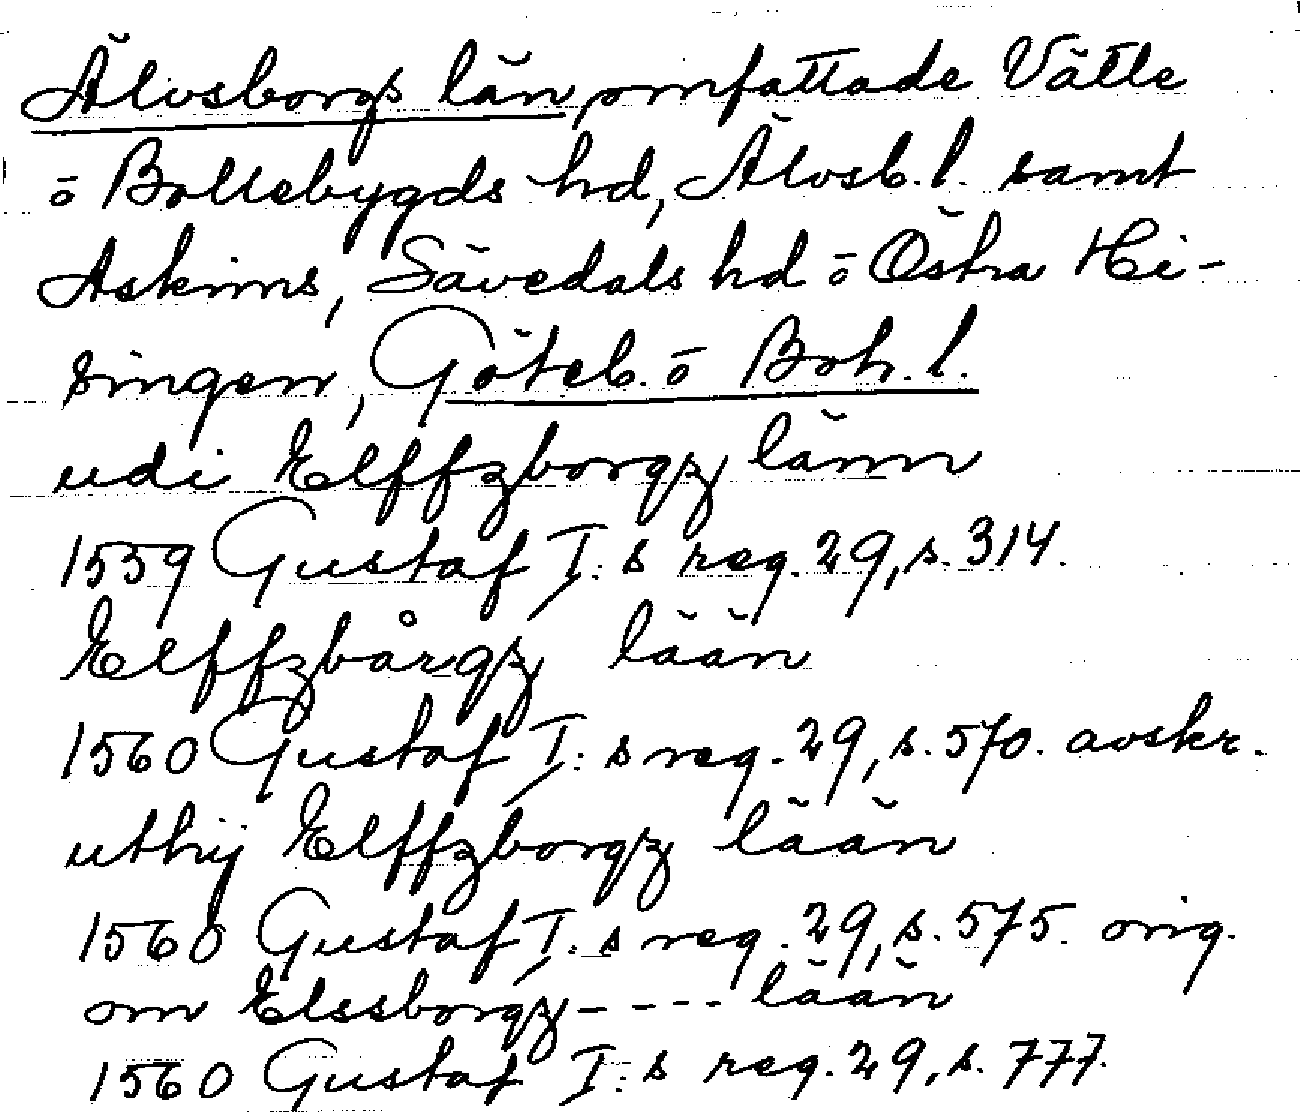 Älvsborgs län, omfattade Vätle
o Bollebygds hd, Älvsb. l. samt
Askims, Sävedals hd o Östra Hi-
singen, Göteb. o Boh. l.
udi Elffzborgz länn
1559 Gustaf I:s reg. 29, s. 314.
Elffzbårgz lään
1560 Gustaf I:s reg. 29, s. 570. avskr.
uthij Elffzborgz lään
1560 Gustaf I:s reg. 29, s. 575. orig.
om Elssborgz - - - - lään
1560 Gustaf I:s reg. 29, s. 777.